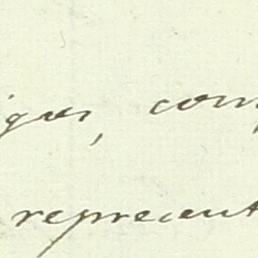 igues, com
represent